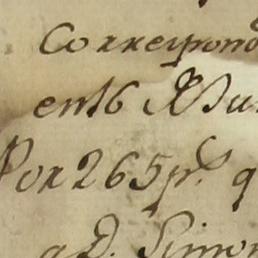 Correspond
en 16
Por 265 p.s q
a D. Simon